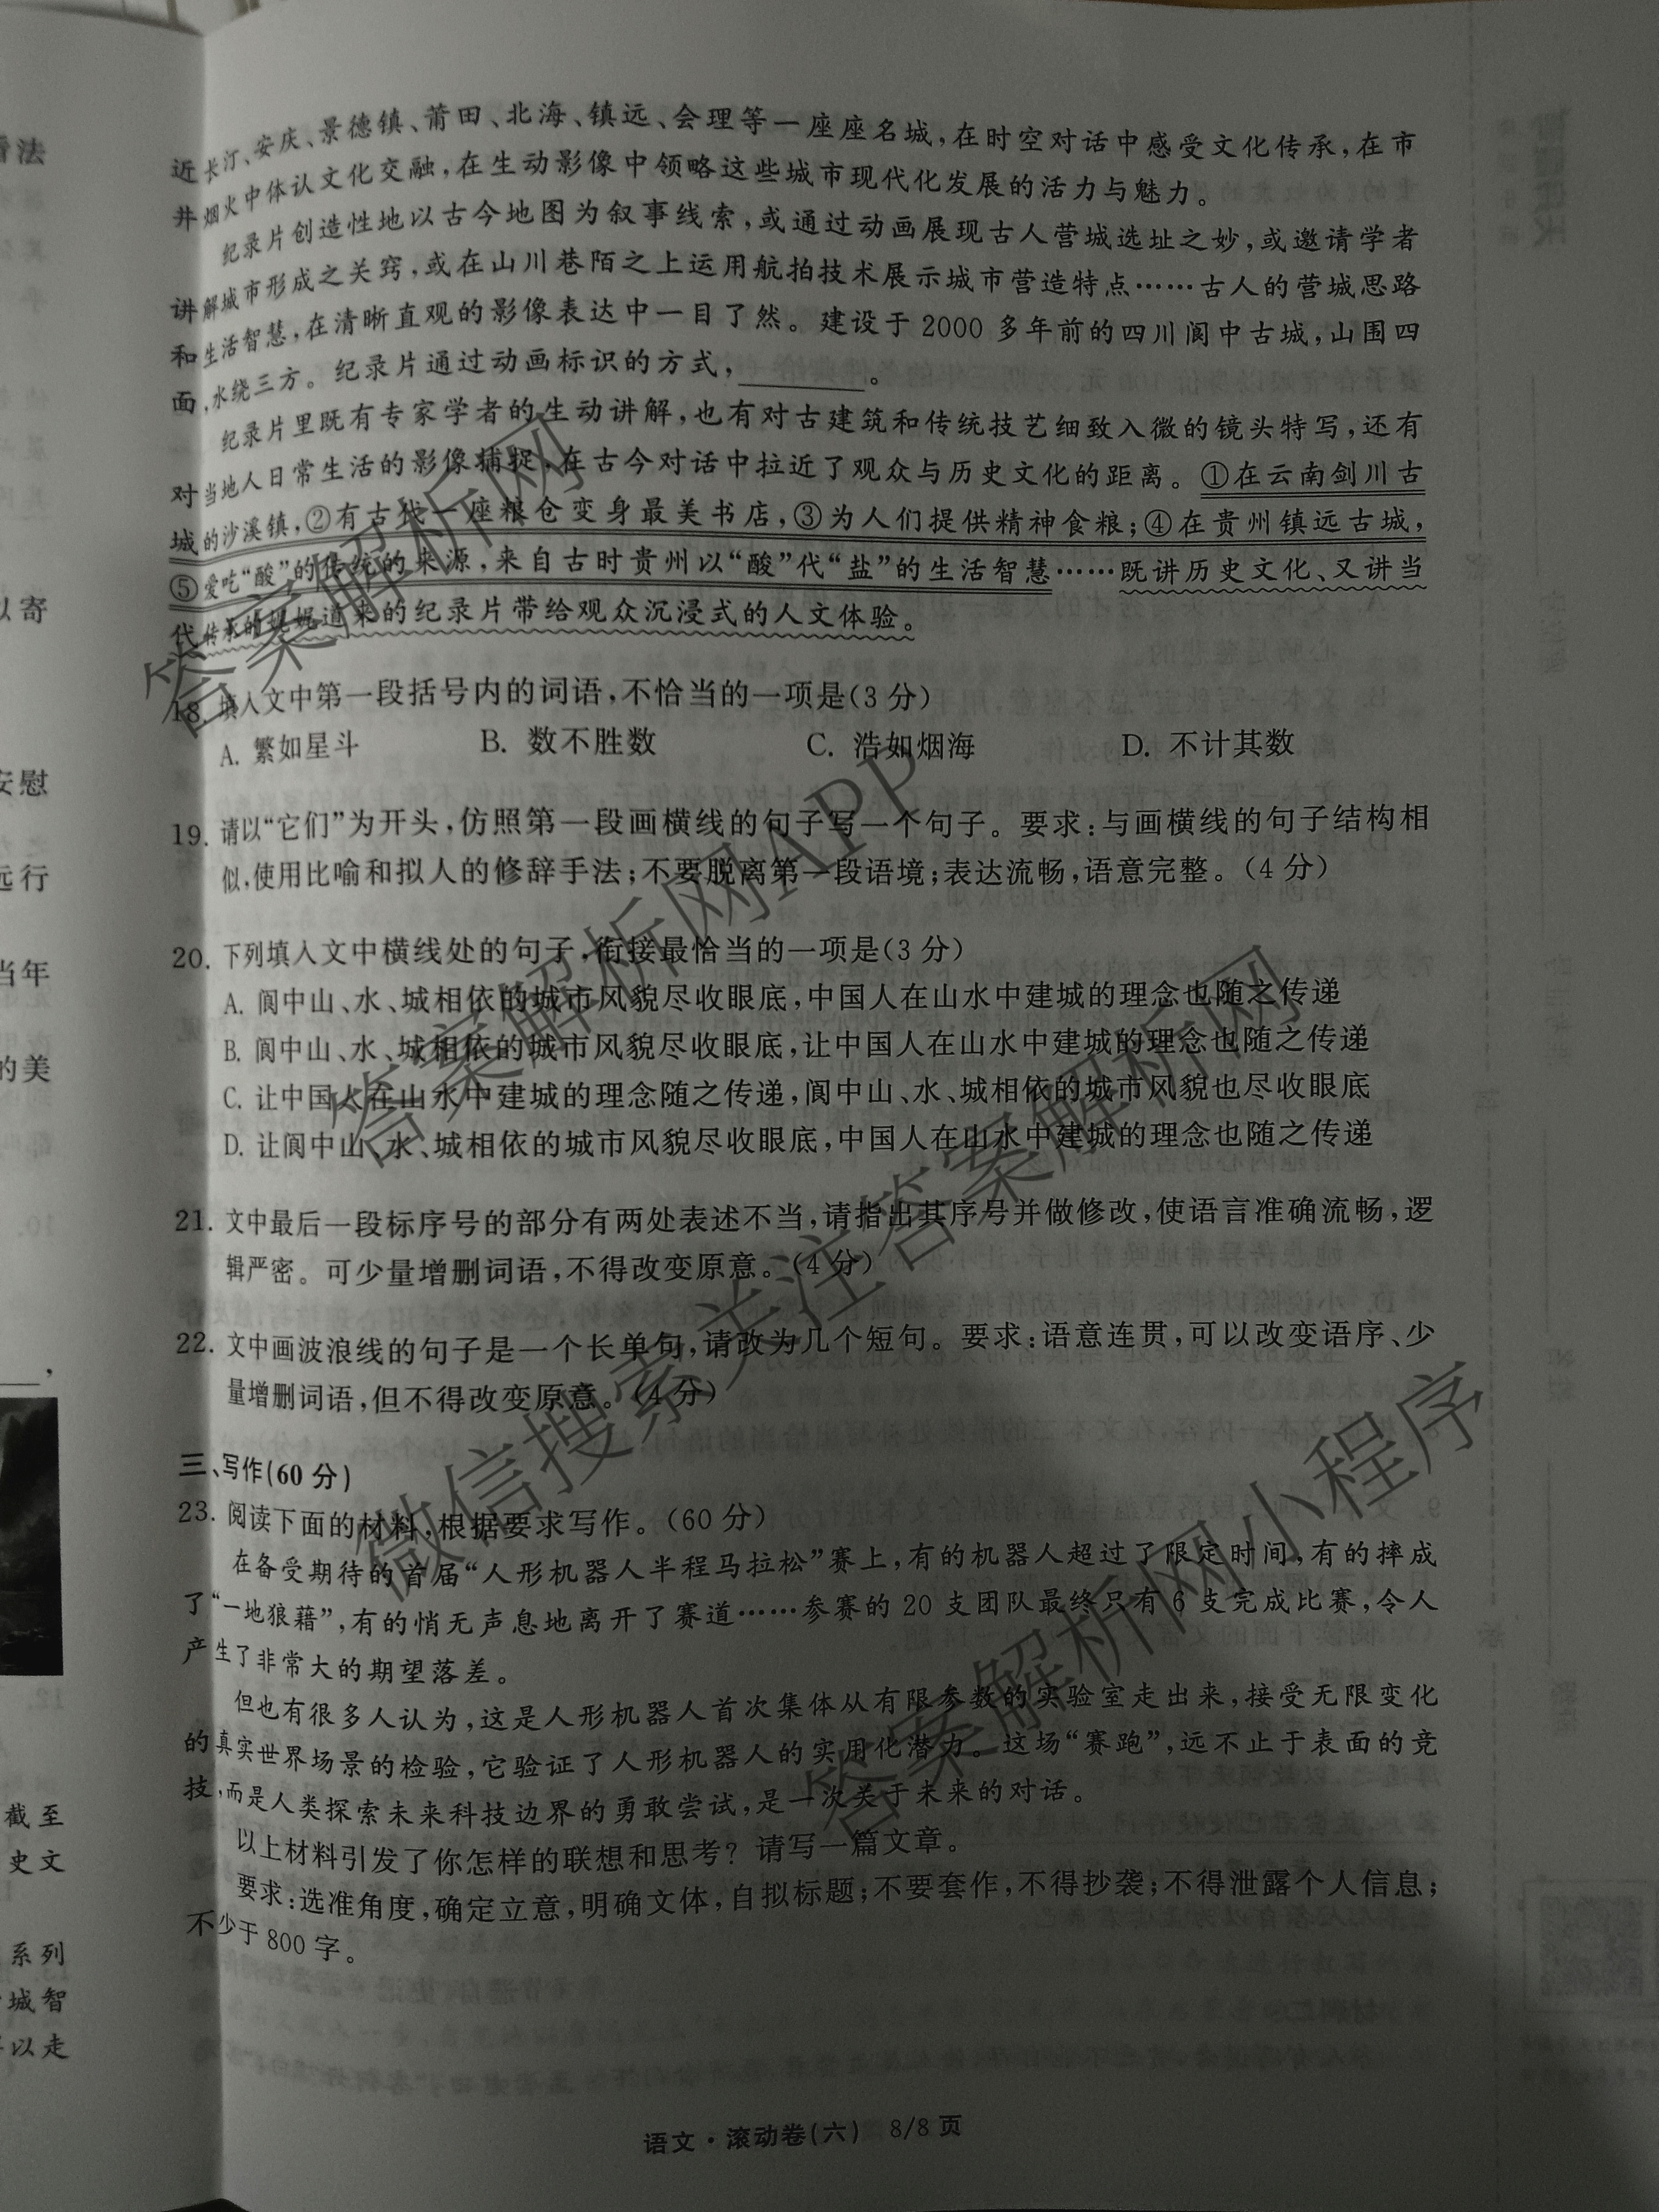 近长汀、安庆、景德镇、莆田、北海、镇远、会理等一座座名城,在时空对话中感受文化传承,在市
井烟火中体认文化交融,在生动影像中领略这些城市现代化发展的活力与魅力。
纪录片创造性地以古今地图为叙事线索,或通过动画展现古人营城选址之妙,或邀请学者
讲解城市形成之关窍,或在山川巷陌之上运用航拍技术展示城市营造特点……古人的营城思路
和生活智慧,在清晰直观的影像表达中一目了然。建设于2000多年前的四川阆中古城,山围四
面,水绕三方。纪录片通过动画标识的方式,________。
纪录片里既有专家学者的生动讲解,也有对古建筑和传统技艺细致入微的镜头特写,还有
对当地人日常生活的影像捕捉,在古今对话中拉近了观众与历史文化的距离。①在云南剑川古
城的沙溪镇,②有古代一座粮仓变身最美书店,③为人们提供精神食粮;④在贵州镇远古城,
⑤爱吃“酸”的传统的来源,来自古时贵州以“酸”代“盐”的生活智慧……既讲历史文化、又讲当
代传承的娓娓道来的纪录片带给观众沉浸式的人文体验。
18. 填入文中第一段括号内的词语,不恰当的一项是(3分)
A. 繁如星斗 B. 数不胜数 C. 浩如烟海 D. 不计其数
19. 请以“它们”为开头,仿照第一段画横线的句子写一个句子。要求:与画横线的句子结构相
似,使用比喻和拟人的修辞手法;不要脱离第一段语境;表达流畅,语意完整。(4分)
20. 下列填入文中横线处的句子,衔接最恰当的一项是(3分)
A. 阆中山、水、城相依的城市风貌尽收眼底,中国人在山水中建城的理念也随之传递
B. 阆中山、水、城相依的城市风貌尽收眼底,让中国人在山水中建城的理念也随之传递
C. 让中国人在山水中建城的理念随之传递,阆中山、水、城相依的城市风貌也尽收眼底
D. 让阆中山、水、城相依的城市风貌尽收眼底,中国人在山水中建城的理念也随之传递
21. 文中最后一段标序号的部分有两处表述不当,请指出其序号并做修改,使语言准确流畅,逻
辑严密。可少量增删词语,不得改变原意。(4分)
22. 文中画波浪线的句子是一个长单句,请改为几个短句。要求:语意连贯,可以改变语序、少
量增删词语,但不得改变原意。(4分)
三、写作(60分)
23. 阅读下面的材料,根据要求写作。(60分)
在备受期待的首届“人形机器人半程马拉松”赛上,有的机器人超过了限定时间,有的摔成
了“一地狼藉”,有的悄无声息地离开了赛道……参赛的20支团队最终只有6支完成比赛,令人
产生了非常大的期望落差。
但也有很多人认为,这是人形机器人首次集体从有限参数的实验室走出来,接受无限变化
的真实世界场景的检验,它验证了人形机器人的实用化潜力。这场“赛跑”,远不止于表面的竞
技,而是人类探索未来科技边界的勇敢尝试,是一次关于未来的对话。
以上材料引发了你怎样的联想和思考?请写一篇文章。
要求:选准角度,确定立意,明确文体,自拟标题;不要套作,不得抄袭;不得泄露个人信息;
不少于800字。
语文·滚动卷(六) 8/8页
看法
以寄
安慰
远行
当年
的美
截至
史文
系列
城智
以走
答案解析网
答案解析网APP
微信搜索关注答案解析网
答案解析网小程序